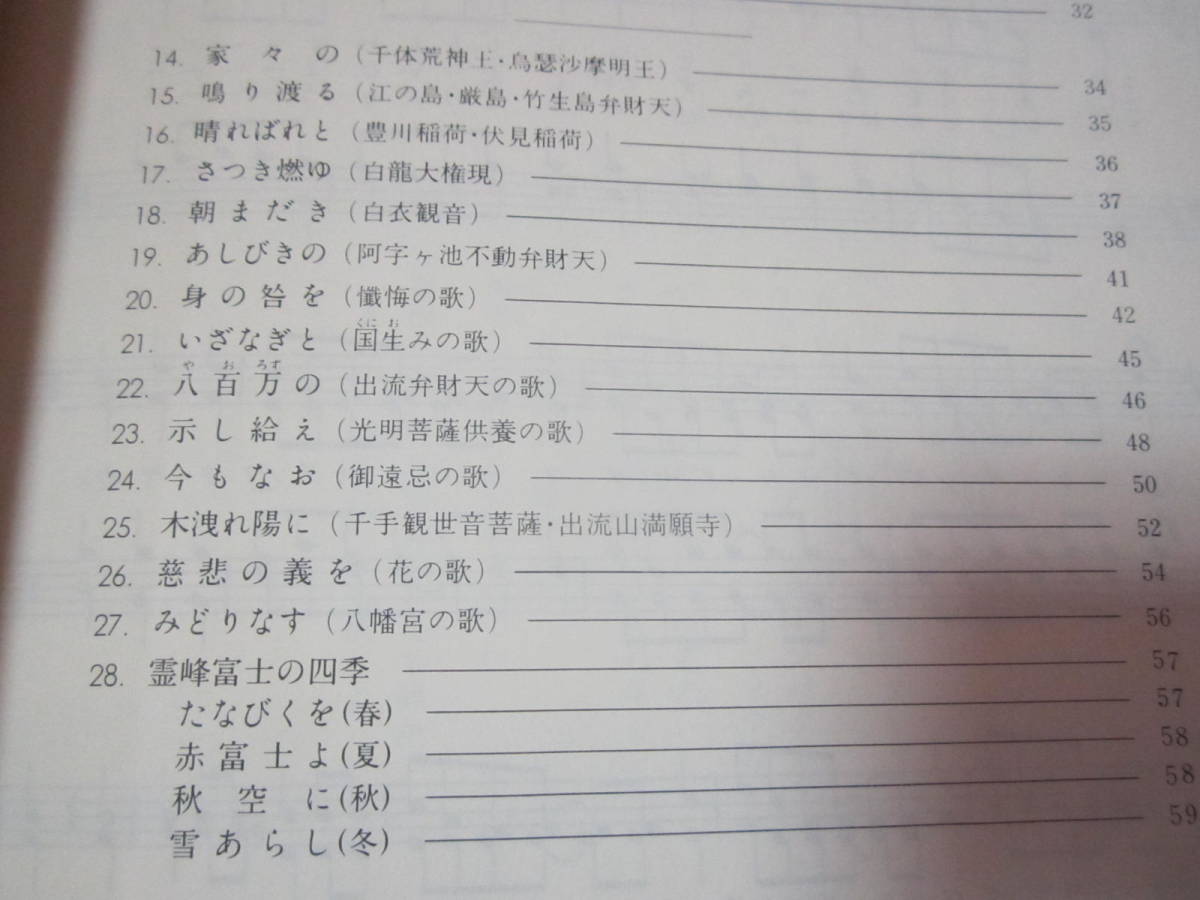 32
14. 家々の (千体荒神王・烏瑟沙摩明王) 34
15. 鳴り渡る (江の島・厳島・竹生島弁財天) 35
16. 晴ればれと (豊川稲荷・伏見稲荷) 36
17. さつき燃ゆ (白龍大権現) 37
18. 朝まだき (白衣観音) 38
19. あしびきの (阿字ヶ池不動弁財天) 41
20. 身の咎を (懺悔の歌) 42
くにお
21. いざなぎと (国生みの歌) 45
やおろず
22. 八百万の (出流弁財天の歌) 46
23. 示し給え (光明菩薩供養の歌) 48
24. 今もなお (御遠忌の歌) 50
25. 木洩れ陽に (千手観世音菩薩・出流山満願寺) 52
26. 慈悲の義を (花の歌) 54
27. みどりなす (八幡宮の歌) 56
28. 霊峰富士の四季 57
たなびくを(春) 57
赤富士よ(夏) 58
秋空に(秋) 58
雪あらし(冬) 59